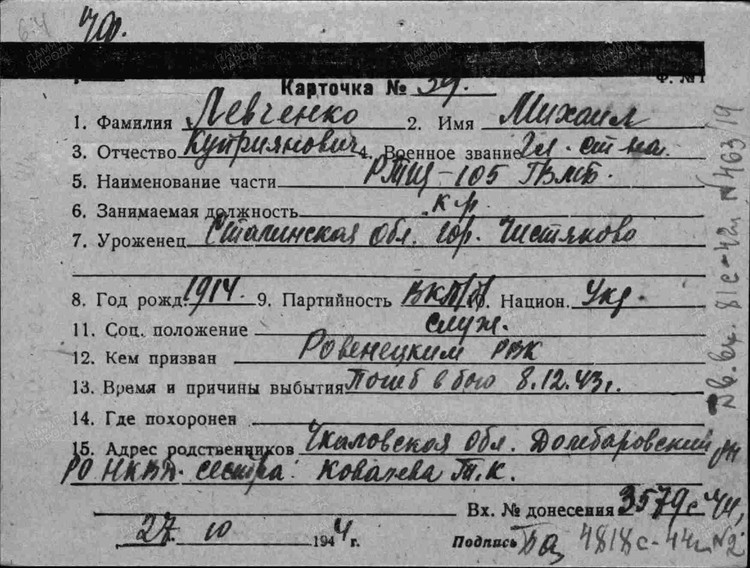 6.4 Уф.
Ф. №1
Карточка № 39.
1. Фамилия Левченко 2. Имя Михаил
3. Отчество Куприянович 4. Военное звание гл. ст-на.
5. Наименование части РТЩ-105 ПВМБ.
6. Занимаемая должность к.р.
7. Уроженец Сталинская обл. гор. Чистяково
8. Год рожд. 1914. 9. Партийность ВКП/б 10. Национ. Укр.
11. Соц. положение служ.
12. Кем призван Ровенецким РВК
13. Время и причины выбытия Погиб в бою 8.12.43г.
14. Где похоронен
15. Адрес родственников Чкаловская обл. Домбаровский р-н
РО НКВД. сестра: Т.К.
Вх. № донесения 3579с-44г.
27. 10 1944 г. Подпись 4818с-44г №2
вх. 81с-42г №463/19
ПАМЯТЬ НАРОДА